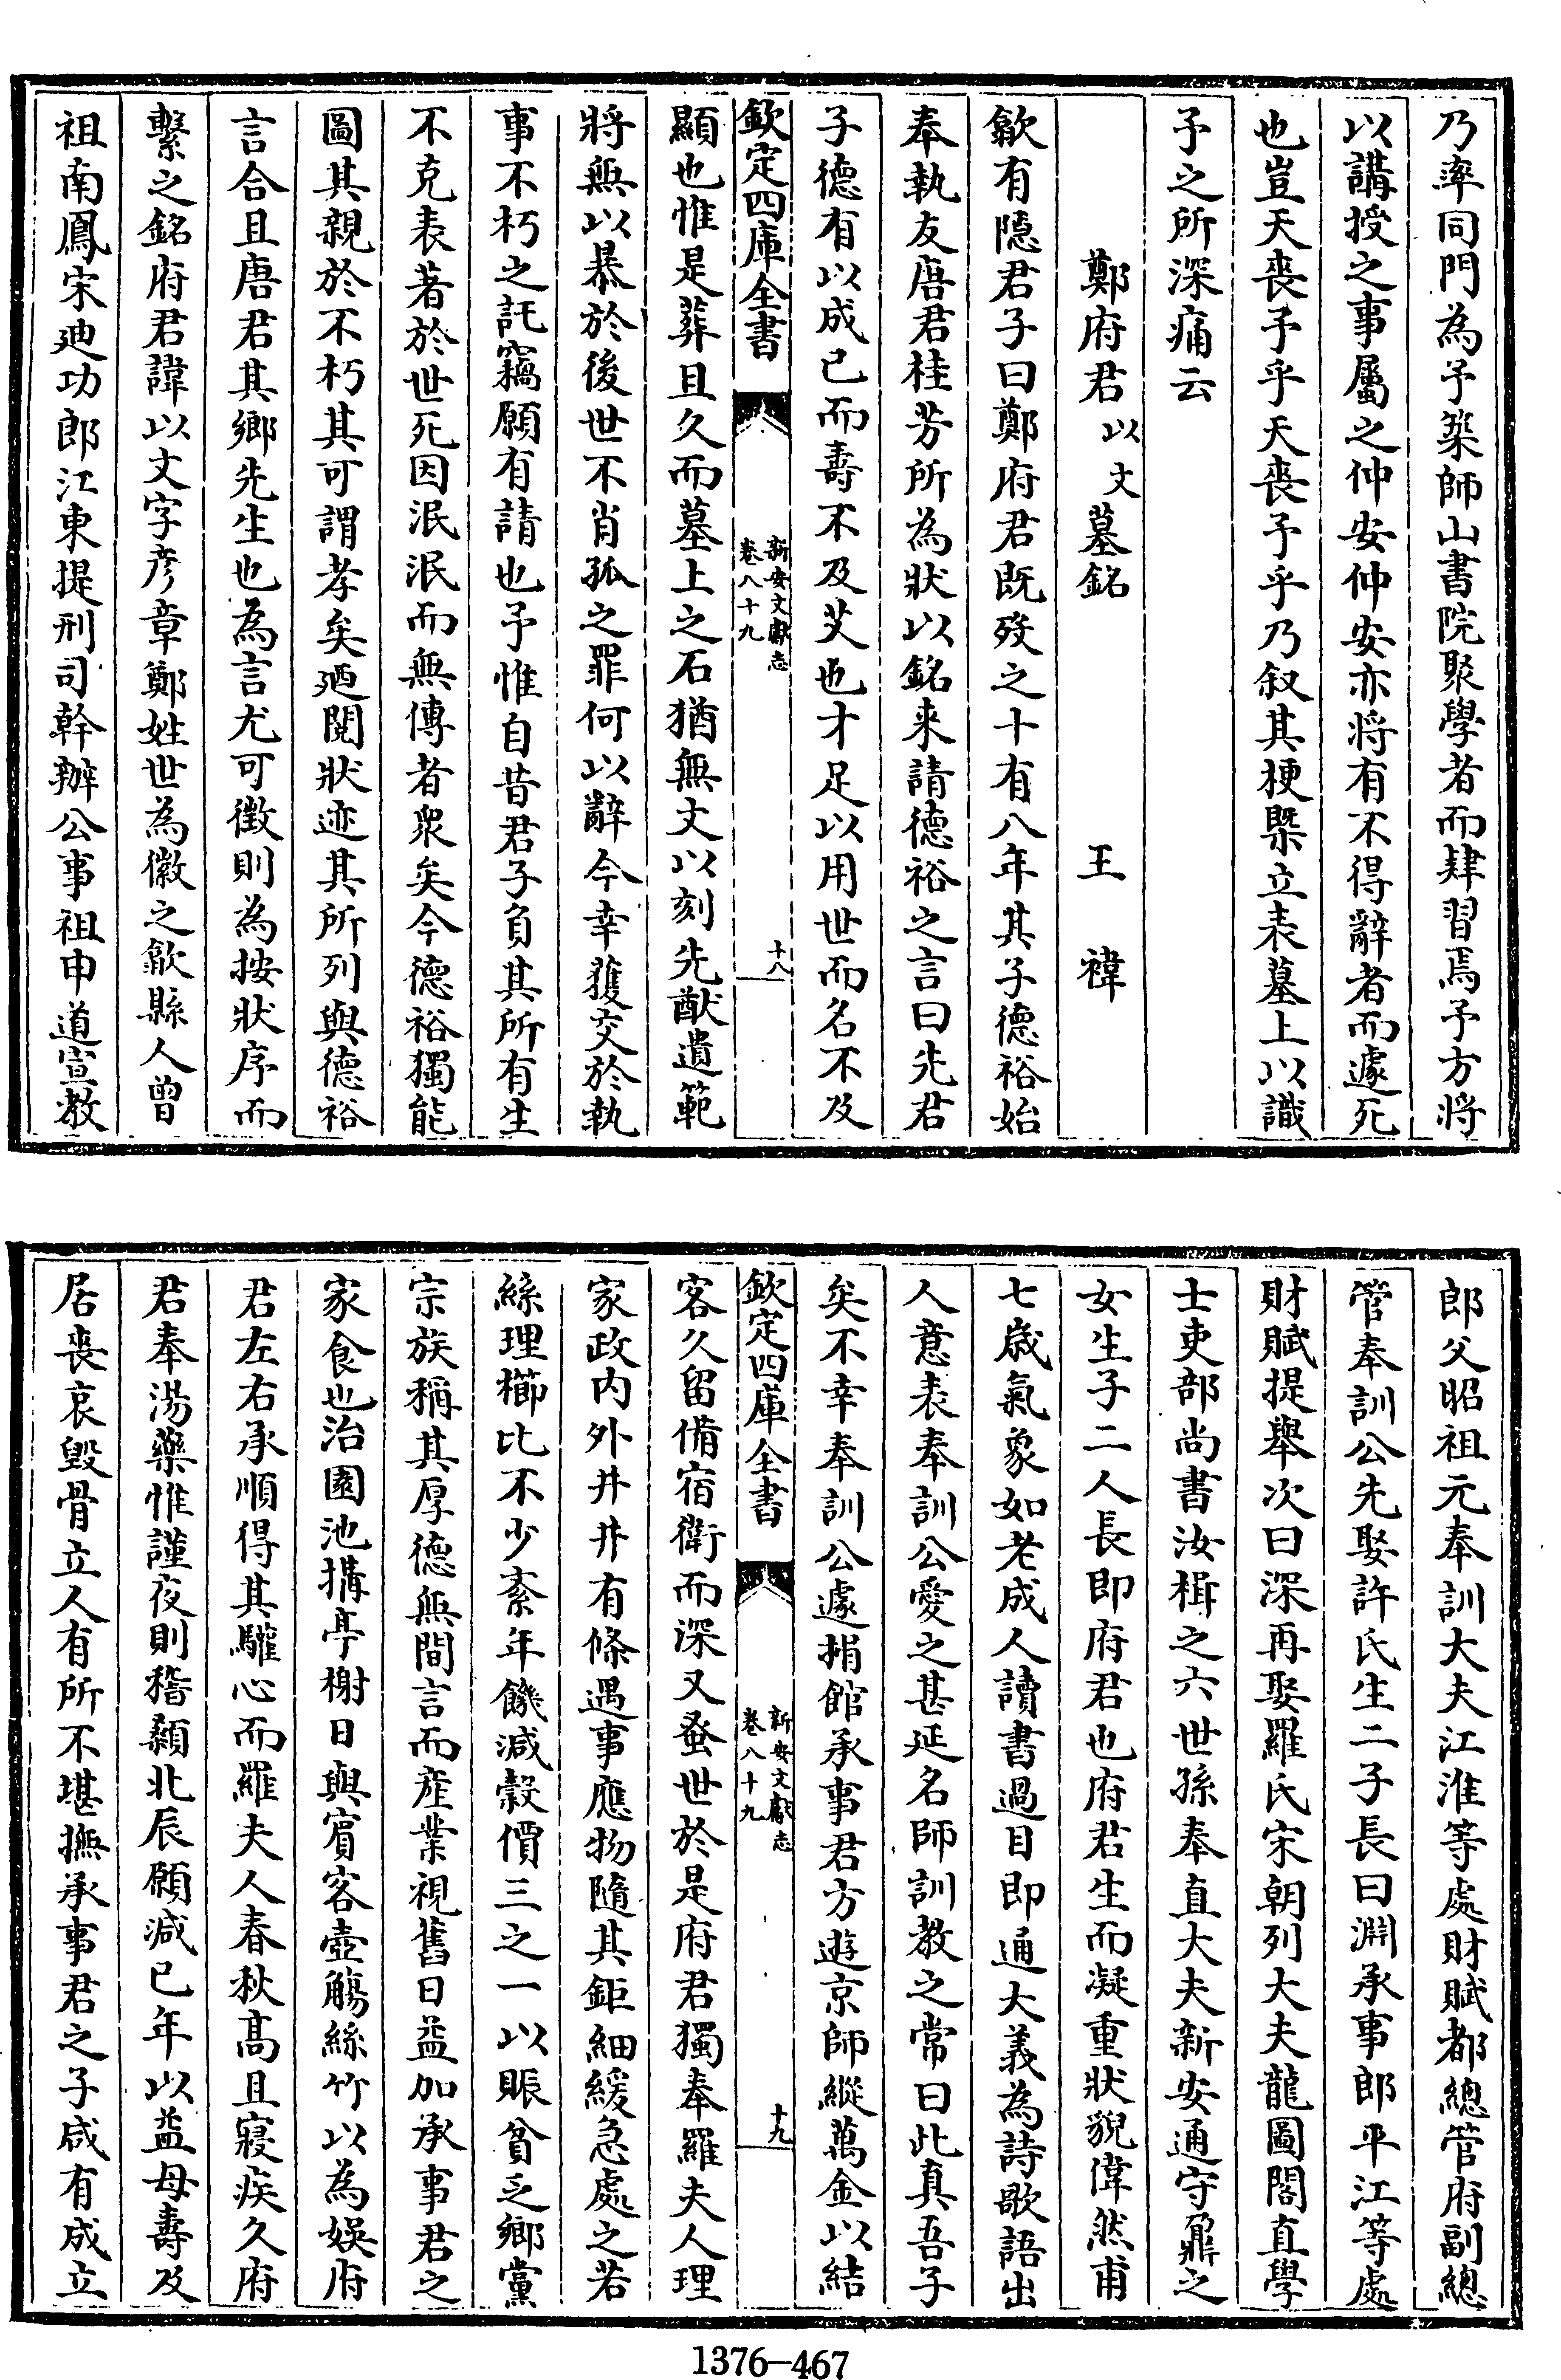 乃率同門為予築師山書院聚學者而肄習焉予方將
以講授之事屬之仲安仲安亦將有不得辭者而遽死
也豈天喪予乎天喪予乎乃叙其梗槩立表墓上以識
予之所深痛云
鄭府君以文墓銘 王褘
歙有隱君子曰鄭府君既歿之十有八年其子德裕始
奉執友唐君桂芳所為狀以銘来請德裕之言曰先君
子德有以成已而壽不及艾也才足以用世而名不及
欽定四庫全書 新安文獻志 卷八十九 十八
顯也惟是葬且久而墓上之石猶無文以刻先猷遺範
將無以暴於後世不肖孤之罪何以辭今幸獲交於執
事不朽之託竊願有請也予惟自昔君子負其所有生
不克表著於世死因泯泯而無傳者衆矣今德裕獨能
圖其親於不朽其可謂孝矣廼閱狀迹其所列與德裕
言合且唐君其鄉先生也為言尤可徵則為按狀序而
繫之銘府君諱以文字彦章鄭姓世為徽之歙縣人曾
祖南鳳宋廸功郎江東提刑司幹辦公事祖申道宣教
郎父昭祖元奉訓大夫江淮等處財賦都總管府副總
管奉訓公先娶許氏生二子長曰淵承事郎平江等處
財賦提舉次曰深再娶羅氏宋朝列大夫龍圖閣直學
士吏部尚書汝楫之六世孫奉直大夫新安通守鼐之
女生子二人長即府君也府君生而凝重狀貌偉然甫
七歲氣象如老成人讀書過目即通大義為詩歌語出
人意表奉訓公愛之甚延名師訓教之常曰此真吾子
矣不幸奉訓公遽捐館承事君方遊京師縱萬金以結
欽定四庫全書 新安文獻志 卷八十九 十九
客久留備宿衛而深又蚤世於是府君獨奉羅夫人理
家政内外井井有條遇事應物隨其鉅細緩急處之若
絲理櫛比不少紊年饑減穀價三之一以賑貧乏鄉黨
宗族稱其厚德無間言而産業視舊日益加承事君之
家食也治園池搆亭榭日與賓客壺觴絲竹以為娛府
君左右承順得其驩心而羅夫人春秋髙且寢疾久府
君奉湯藥惟謹夜則稽顙北辰願減已年以益母壽及
居喪哀毀骨立人有所不堪撫承事君之子咸有成立
1376-467